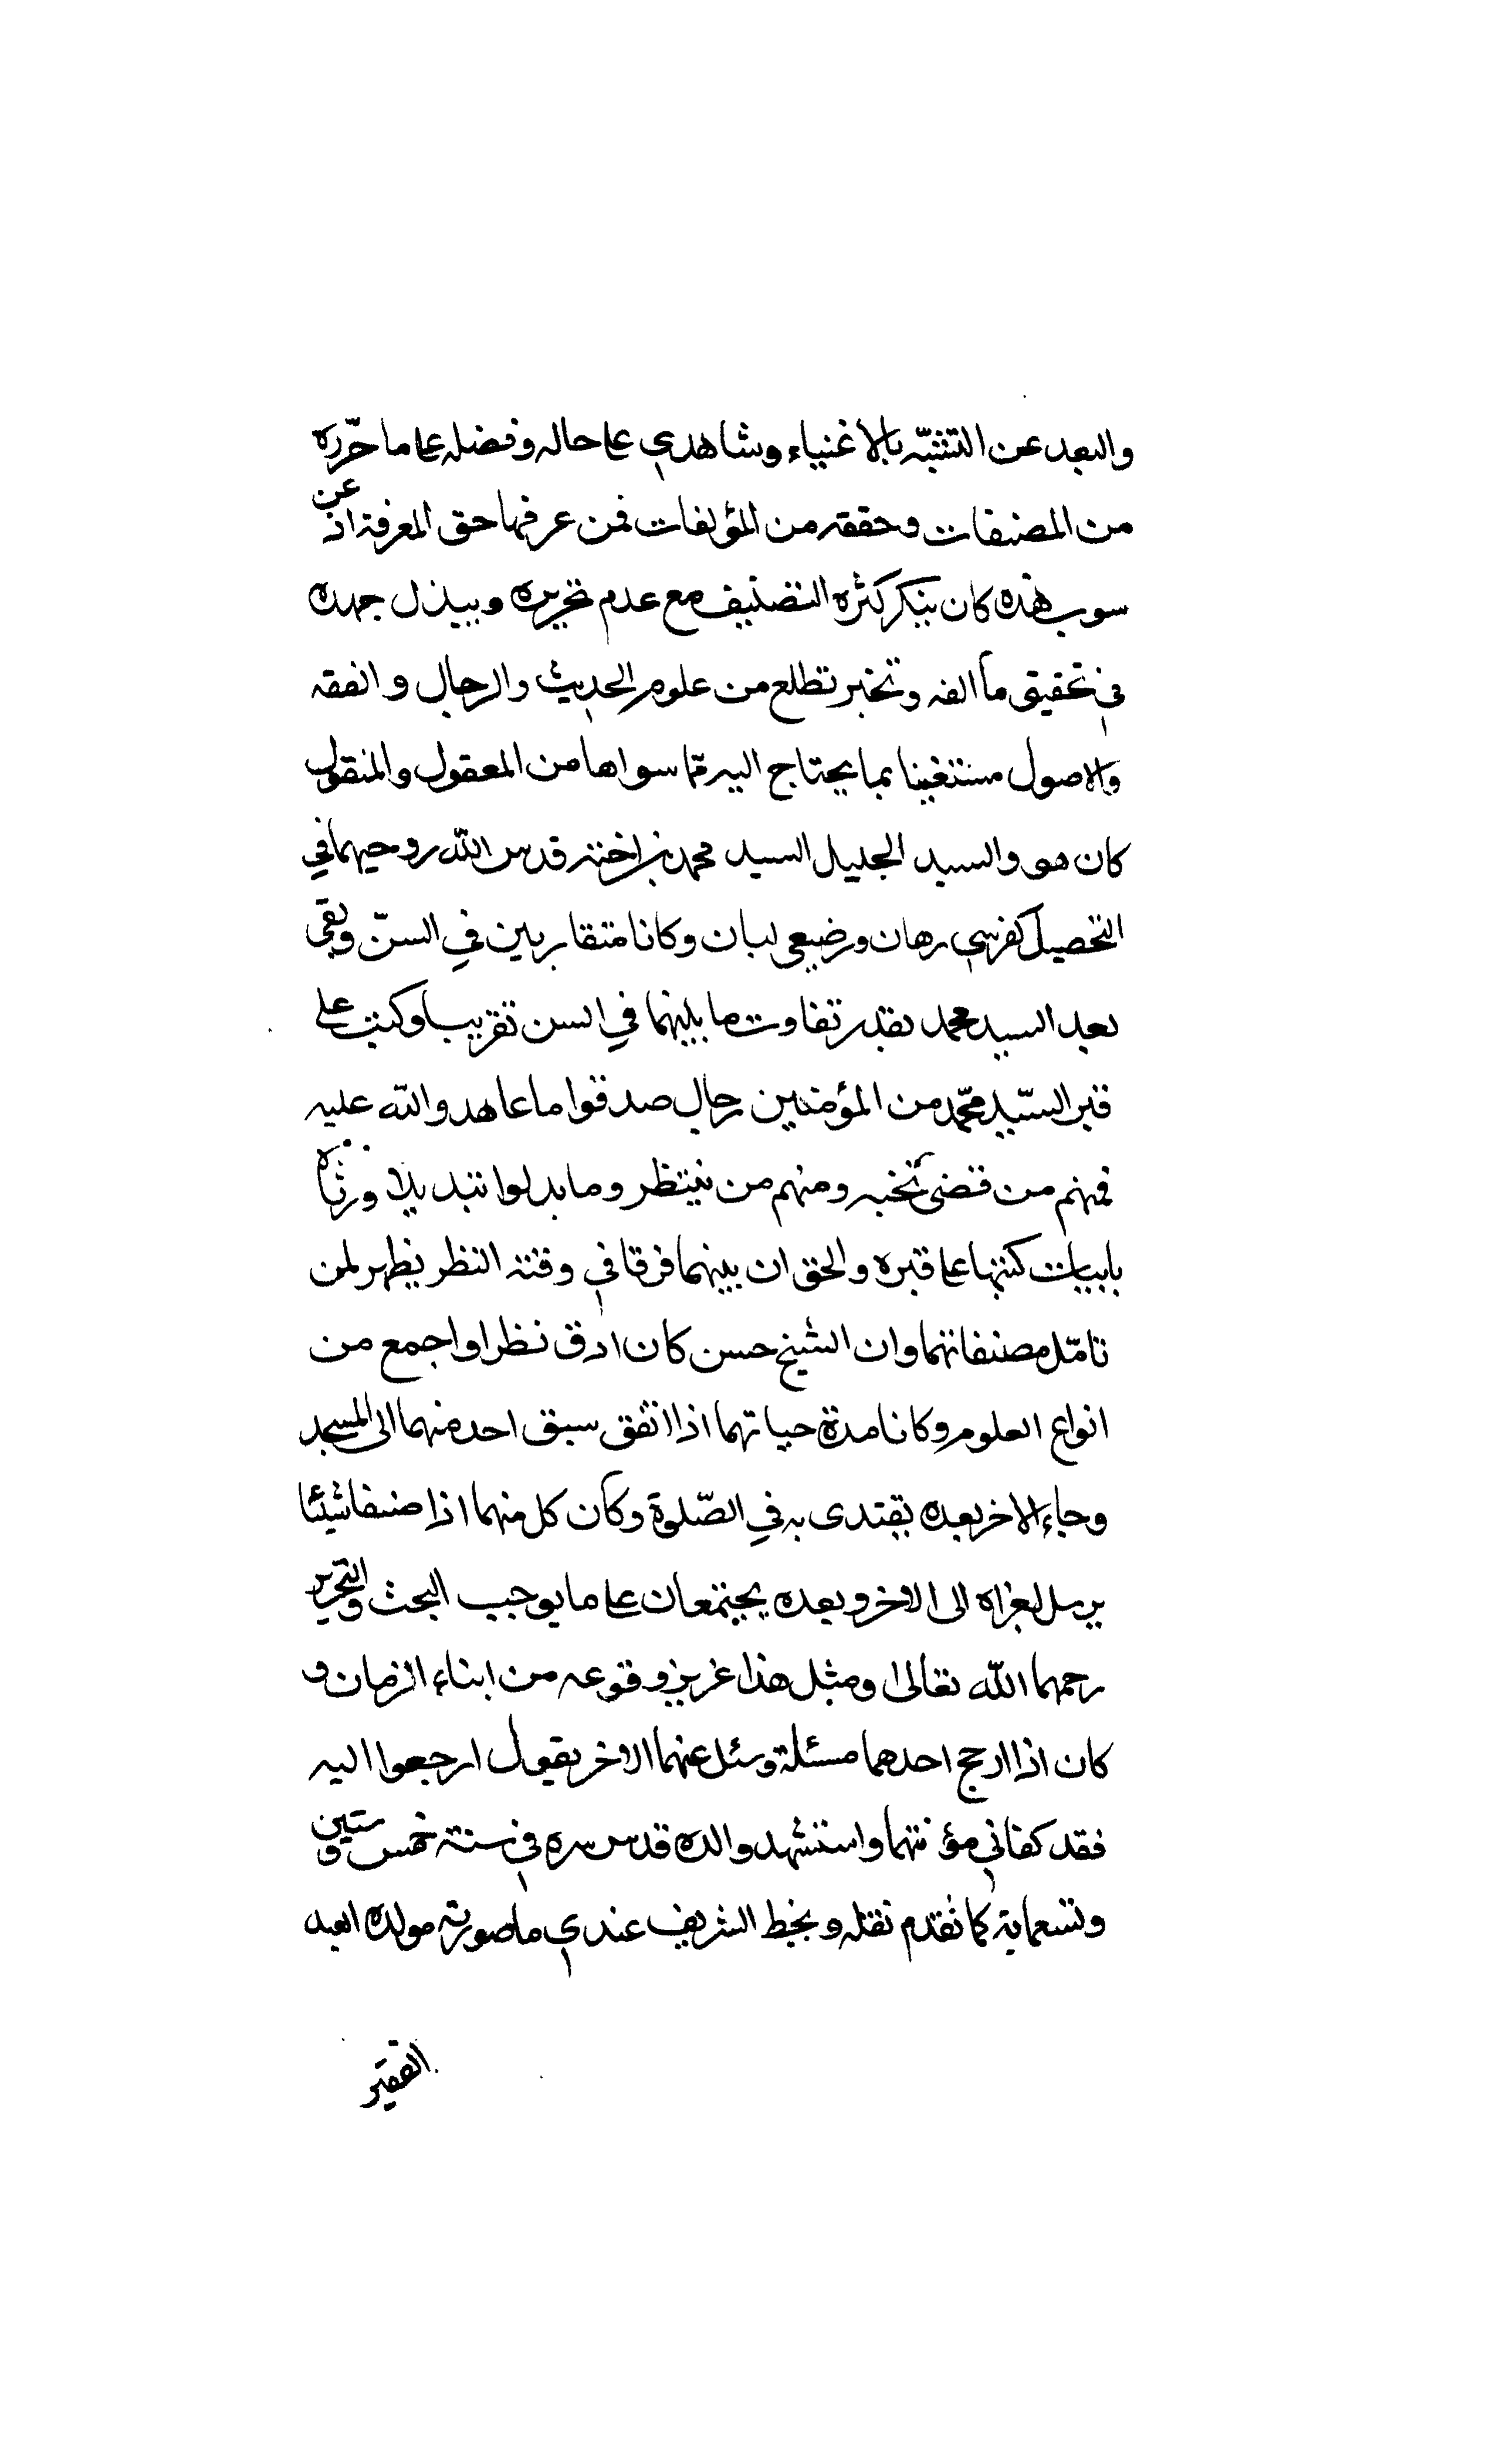 والبعد عن التشبّه بالاغنياء وشاهدي على حاله وفضله على ما حرّره
من المصنفات وحققه من المؤلفات فمن عرفها حق المعرفة اذعن
كان ينكر كثرة التصنيف مع عدم تحريره ويبذل جهده
في تحقيق ما الفه وتخبر تطلع من علوم الحديث والرجال والفقه
والاصول مستغنيا بما يحتاج اليه ممّا سواها من المعقول والمنقول
كان هو والسيد الجليل السيد محمد بن اخته قدس الله روحيهما في
التحصيل كفرسي رهان ورضيعي لبان وكانا متقاربين في السنّ وبقى
بعد السيد محمد بقدر تفاوت ما بينهما في السن تقريبا وكتب على
قبر السّيد محمّد من المؤمنين رجال صدقوا ما عاهدوا الله عليه
فمنهم من قضى نحبه ومنهم من ينتظر وما بدلوا تبديلا ورثاه
بابيات كتبها على قبره والحق ان بينهما فرقا في وقته النظر يظهر لمن
تامّل مصنفاتهما وان الشيخ حسن كان ادق نظرا واجمع من
انواع العلوم وكانا مدة حياتهما اذا اتفق سبق احد منهما الى المسجد
وجاء الاخر بعده يقتدى به في الصّلوة وكان كل منهما اذا صنف شيئا
يرسل اجزاه الى الاخر وبعده يجتمعان على ما يوجب البحث والتحرير
رحمهما الله تعالى ومثل هذا عزيز وقوعه من ابناء الزمان و
كان اذا ارجح احدهما مسئلة وسئل عنهما الاخر يقول ارجعوا اليه
فقد كفاني مؤنتهما واستشهد والده قدس سره في سنة خمس وستين
وتسعماية كما تقدم نقله وبخط الشريف عندي ما صورته مولده العبد
الفقير